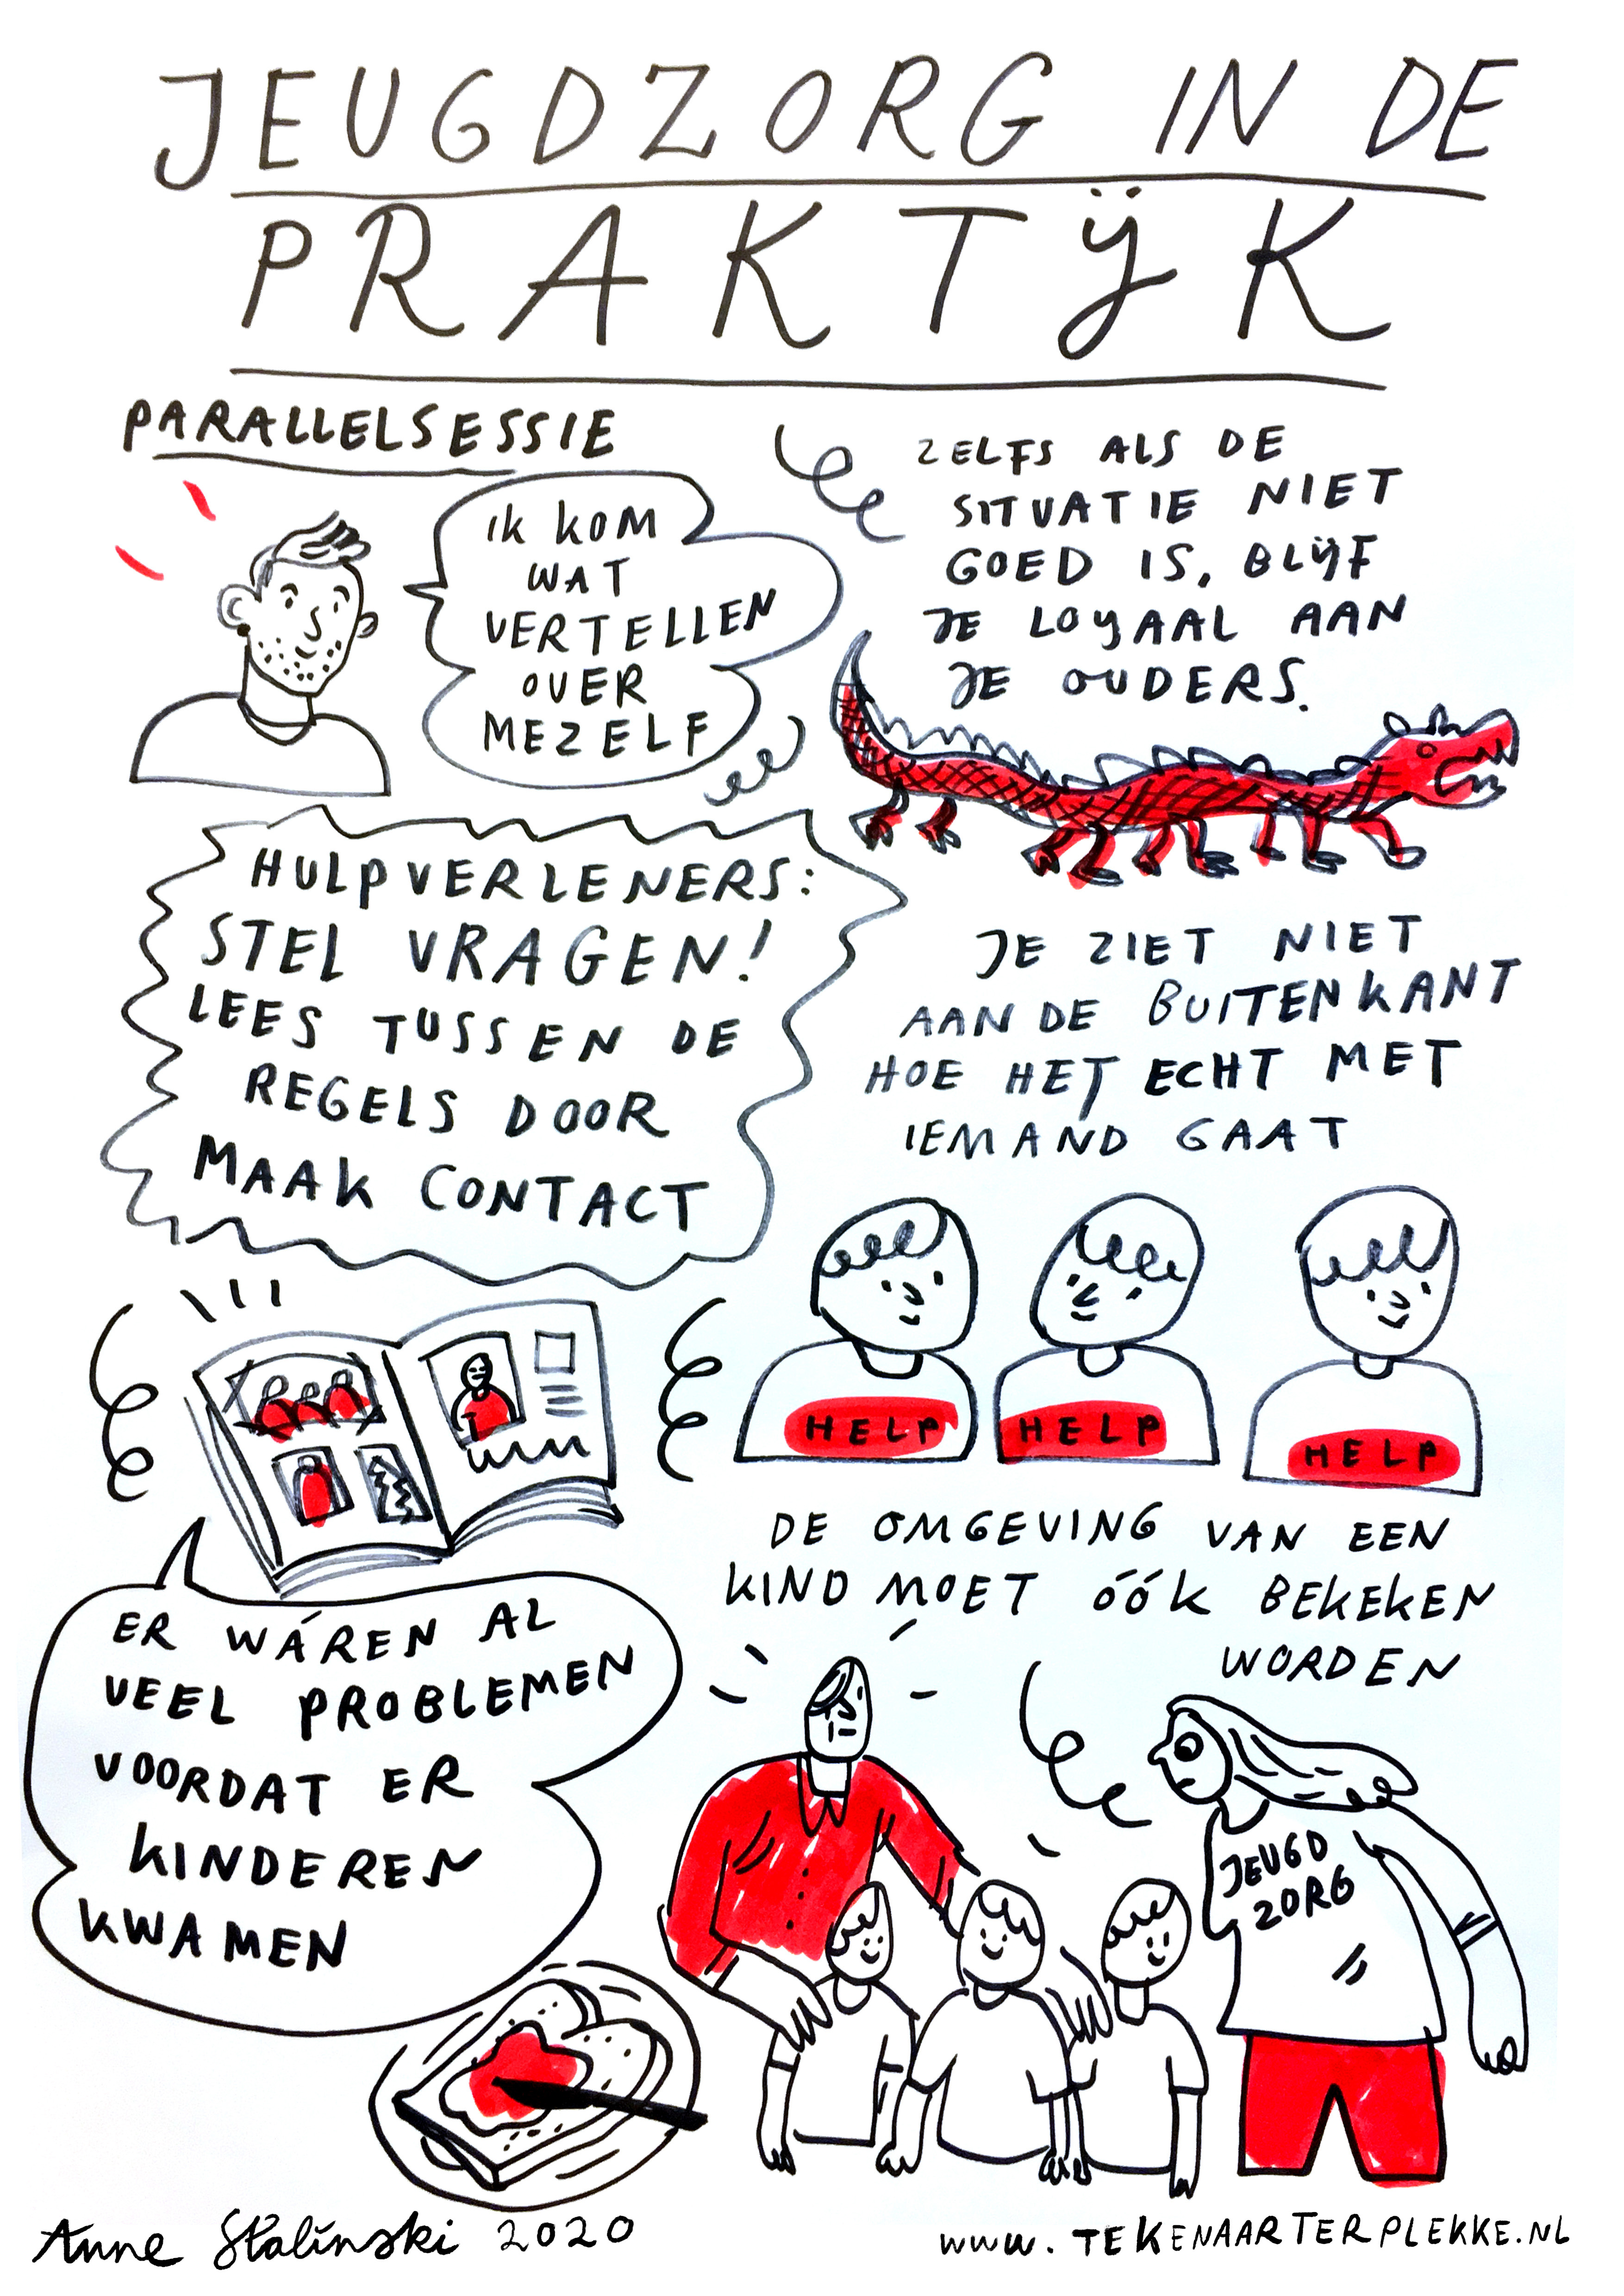 JEUGDZORG IN DE
PRAKTIJK
PARALLELSESSIE
IK KOM
WAT
VERTELLEN
OVER
MEZELF
ZELFS ALS DE
SITUATIE NIET
GOED IS, BLIJF
JE LOYAAL AAN
JE OUDERS.
HULPVERLENERS:
STEL VRAGEN!
LEES TUSSEN DE
REGELS DOOR
MAAK CONTACT
JE ZIET NIET
AAN DE BUITENKANT
HOE HET ECHT MET
IEMAND GAAT
HELP
HELP
HELP
DE OMGEVING VAN EEN
KIND MOET ÓÓK BEKEKEN
WORDEN
ER WÁREN AL
VEEL PROBLEMEN
VOORDAT ER
KINDEREN
KWAMEN
JEUGD
ZORG
Anne Stalinski 2020
www.TEKENAARTERPLEKKE.NL